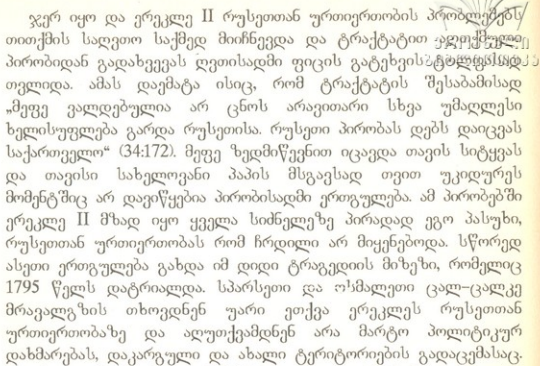 ჯერ იყო და ერეკლე II რუსეთთან ურთიერთობის პრობლემებს
თითქმის საღვთო საქმედ მიიჩნევდა და ტრაქტატით აღთქმული
პირობიდან გადახვევას ღვთისადმი ფიცის გატეხვის ტოლფასად
თვლიდა. ამას დაემატა ისიც, რომ ტრაქტატის შესაბამისად
„მეფე ვალდებულია არ ცნოს არავითარი სხვა უმაღლესი
ხელისუფლება გარდა რუსეთისა. რუსეთი პირობას დებს დაიცვას
საქართველო“ (34:172). მეფე ზედმიწევნით იცავდა თავის სიტყვას
და თავისი სახელოვანი პაპის მსგავსად თვით უკიდურეს
მომენტშიც არ დავიწყებია პირობისადმი ერთგულება. ამ პირობებში
ერეკლე II მზად იყო ყველა სიძნელეზე პირადად ეგო პასუხი,
რუსეთთან ურთიერთობას რომ ჩრდილი არ მიყენებოდა. სწორედ
ასეთი ერთგულება გახდა იმ დიდი ტრაგედიის მიზეზი, რომელიც
1795 წელს დატრიალდა. სპარსეთი და ოსმალეთი ცალ–ცალკე
მრავალგზის თხოვდნენ უარი ეთქვა ერეკლეს რუსეთთან
ურთიერთობაზე და აღუთქვამდნენ არა მარტო პოლიტიკურ
დახმარებას, დაკარგული და ახალი ტერიტორიების გადაცემასაც.